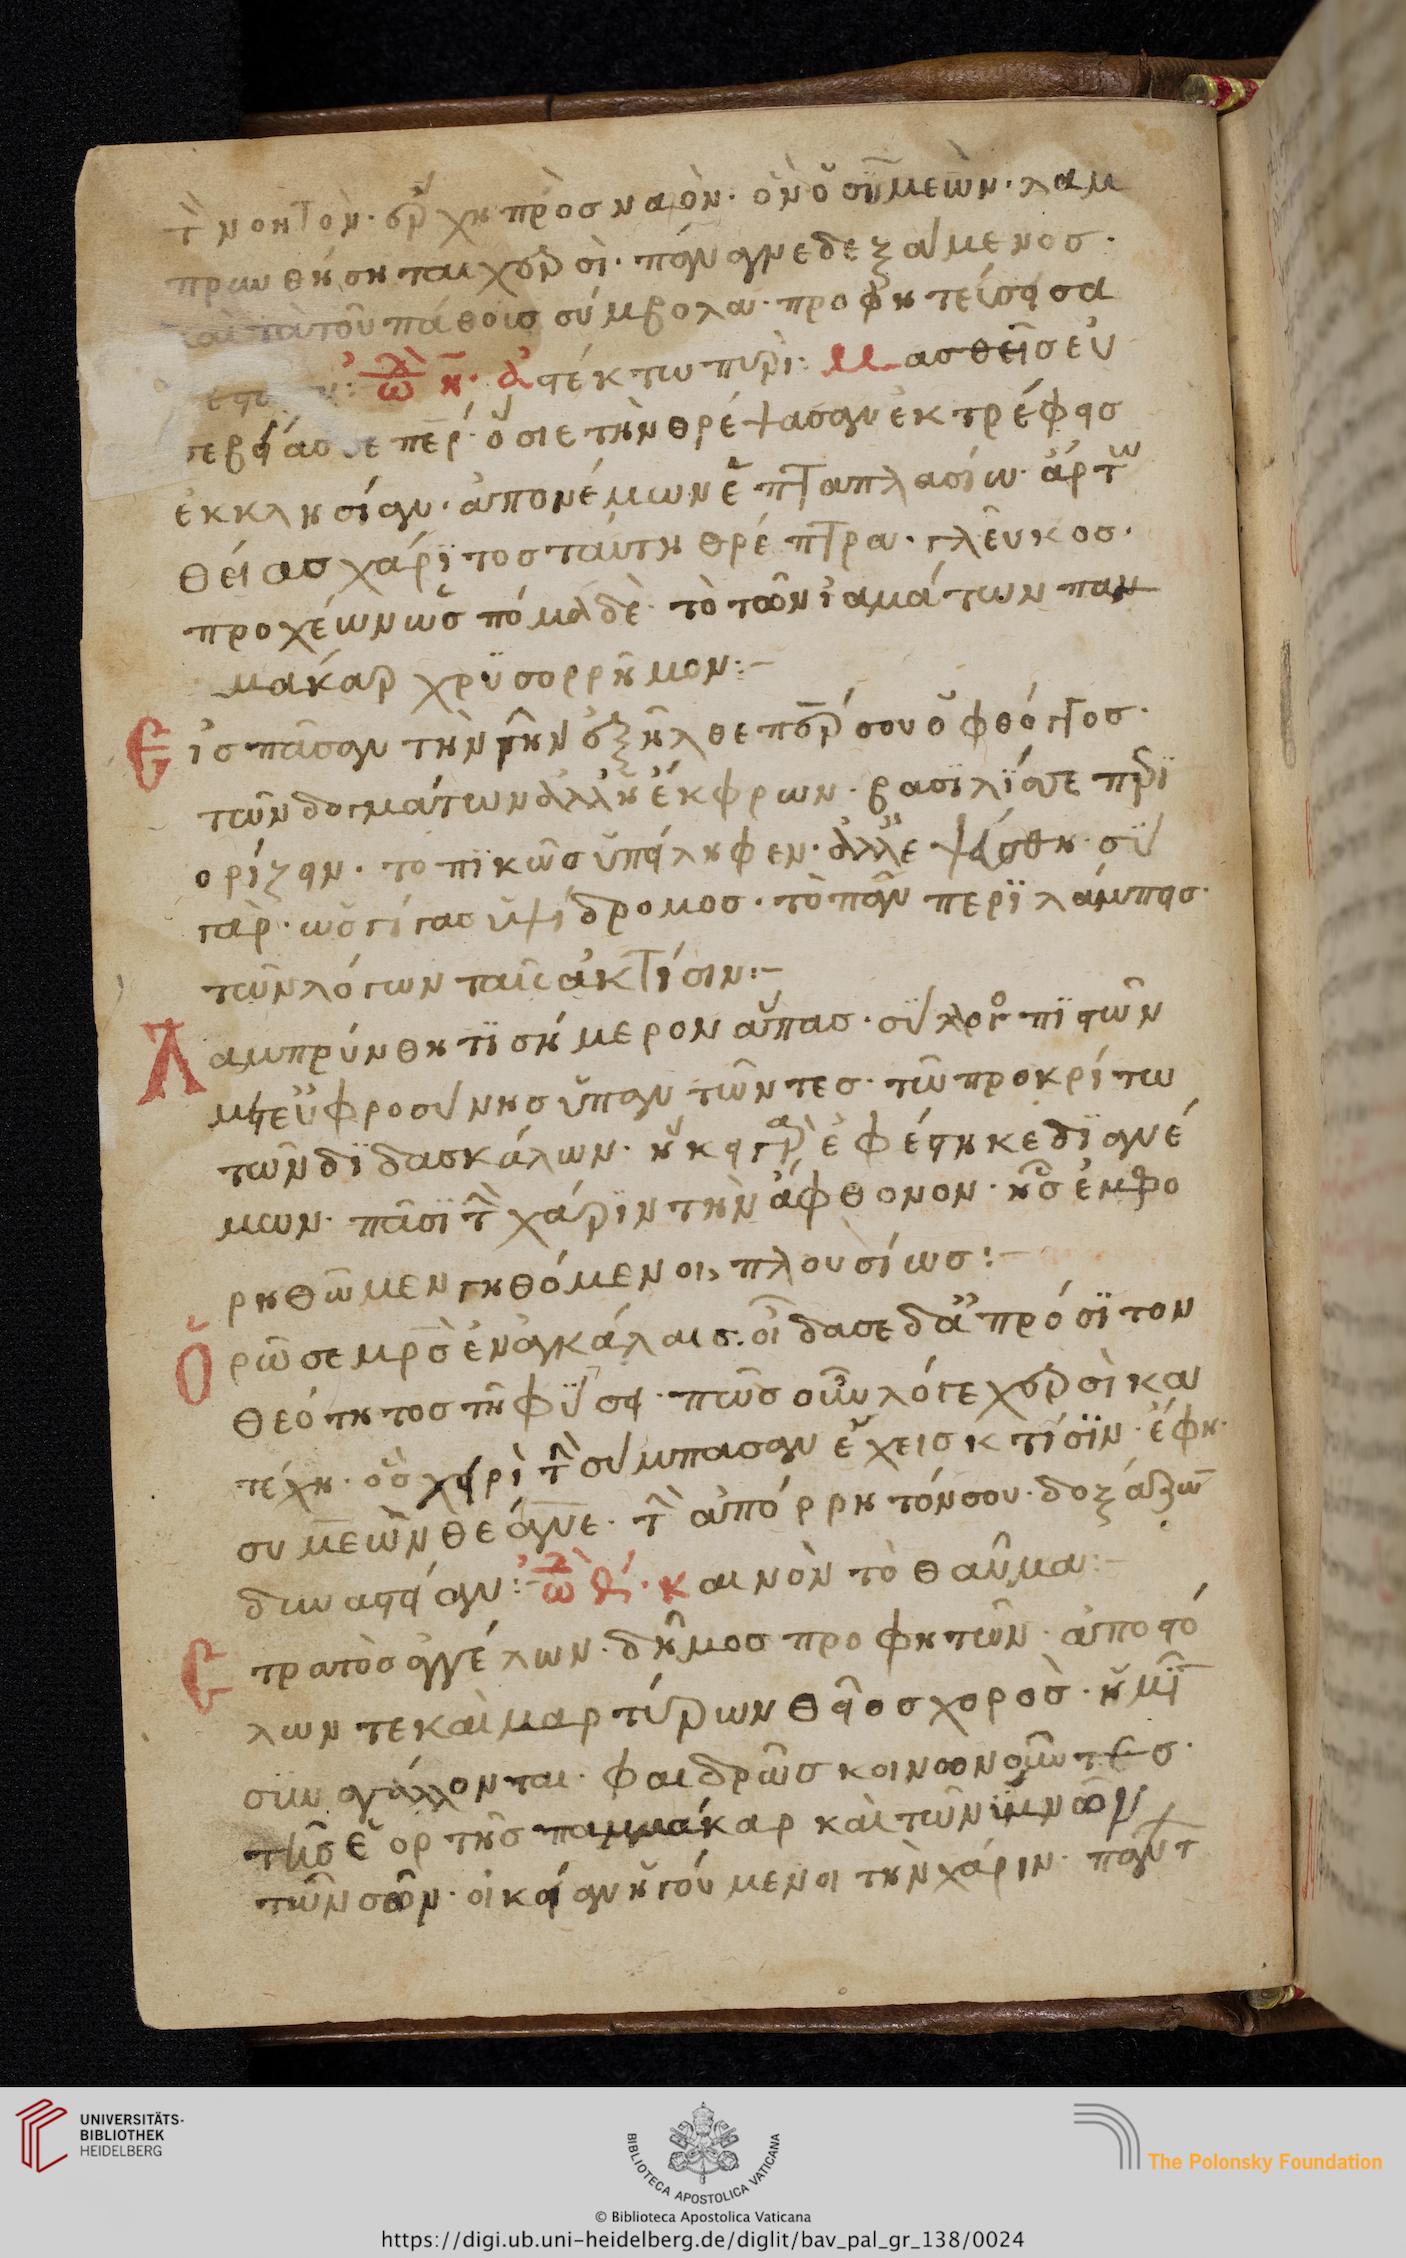 τὸν νοητὸν· ἔρχῃ πρὸς ναὸν· ὃν ὁ συμεὼν· λαμ
πρῶς θήσῃ ται χερσὶ· πάντα ἀνεδεξάμενος·
καὶ τὰ τοῦ πάθους σύμβολα· προφητείσασα
ᾠδὴ η· ἀστέκτω πυρὶ: Μασθεῖσ ἐν
πέρ· ὁσιε τὴν θρέψασαν ἐκτρέφεις
ἐκκλησίαν· ἀπονέμων ἑπταπλασίω· ἄρτω
θείας χάριτος ταύτη θρέπτρα· γλεῦκος·
προχέων ὡς πόμα δὲ· τὸ τῶν ἰαμάτων παμ
μάκαρ χρυσορρῆμον:–
Εἰς πᾶσαν τὴν γῆν ἐξῆλθε πάτερ σου ὁ φθόγγος·
τῶν δογμάτων ἀλλ' ἡ ἔκφρων· βασιλὶς σε περι
ορίζειν· τοπικῶς ὑπείληφεν· ἀλλ' ἐψεύσθη· σὺ
γὰρ· ὡς γίγας ὑψίδρομος· τὸ πᾶν περιλάμπεις·
τῶν λόγων ταῖς ἀκτίσιν:–
Λαμπρύνθητι σήμερον ἅπας· σύλλογος πιστῶν
μετ' εὐφροσύνης ὑπαντῶντες· τῶ προκρίτω
τῶν διδασκάλων· ἥκει γὰρ ἐφέστηκε διανέ
μων· πᾶσι τὴν χάριν τὴν ἄφθονον· ἧς ἐμφο
ρηθῶμεν γηθόμενοι, πλουσίως:–
Ὁρῶ σε μρσ ἐν ἀγκάλαις· οἶδα σε δὲ ἀπρόσιτον
θεότητος τῆ φύσει· πῶς οὖν λόγε χερσὶ κα
τέχη· ὃς χειρὶ τὴν σύμπασαν ἔχεις κτίσιν· ἔφη·
συμεὼν θεάνερ· τὴν ἀπόρρητόν σου· δοξάζων
δυναστείαν:– ᾠδὴ θ· καινὸν τὸ θαῦμα:–
Στρατὸς ἀγγέλων· δῆμος προφητῶν· ἀποστό
λων τε καὶ μαρτύρων θεῖος χορὸς· ἡμῖν
συναγάλλονται· φαιδρῶς κοινωνοῦντες·
τῆς ἑορτῆς παμμάκαρ καὶ τῶν ὕμνων
τῶν σῶν· οἰκείαν ἡγούμενοι τὴν χάριν· παντ
UNIVERSITÄTS-
BIBLIOTHEK
HEIDELBERG
BIBLIOTECA APOSTOLICA VATICANA
The Polonsky Foundation
© Biblioteca Apostolica Vaticana
https://digi.ub.uni-heidelberg.de/diglit/bav_pal_gr_138/0024